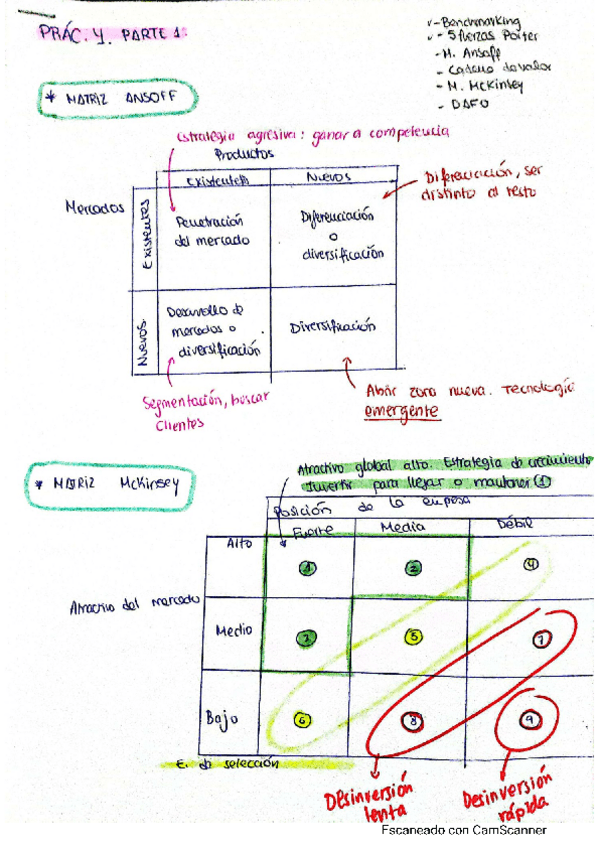 PRÁC. 4. PARTE 1.
- Benchmarking
- 5 fuerzas Porter
- M. Ansoff
- Cadena de valor
- M. McKinsey
- DAFO
* MATRIZ ANSOFF
Estrategia agresiva: ganar a competencia
Productos
Existentes
Nuevos
Mercados
Existentes
Penetración
del mercado
Diferenciación
o
diversificación
Diferenciación, ser
distinto al resto
Nuevos
Desarrollo de
mercados o
diversificación
Diversificación
Segmentación, buscar
clientes
Abrir zona nueva. Tecnología
emergente
* MATRIZ McKinsey
Atractivo global alto. Estrategia de crecimiento
Invertir para llegar o mantener ①
Posición de la empresa
Fuerte
Media
Débil
Atractivo del mercado
Alto
1
2
4
Medio
5
7
Bajo
6
8
9
E. de selección
Desinversión
lenta
Desinversión
rápida
Escaneado con CamScanner